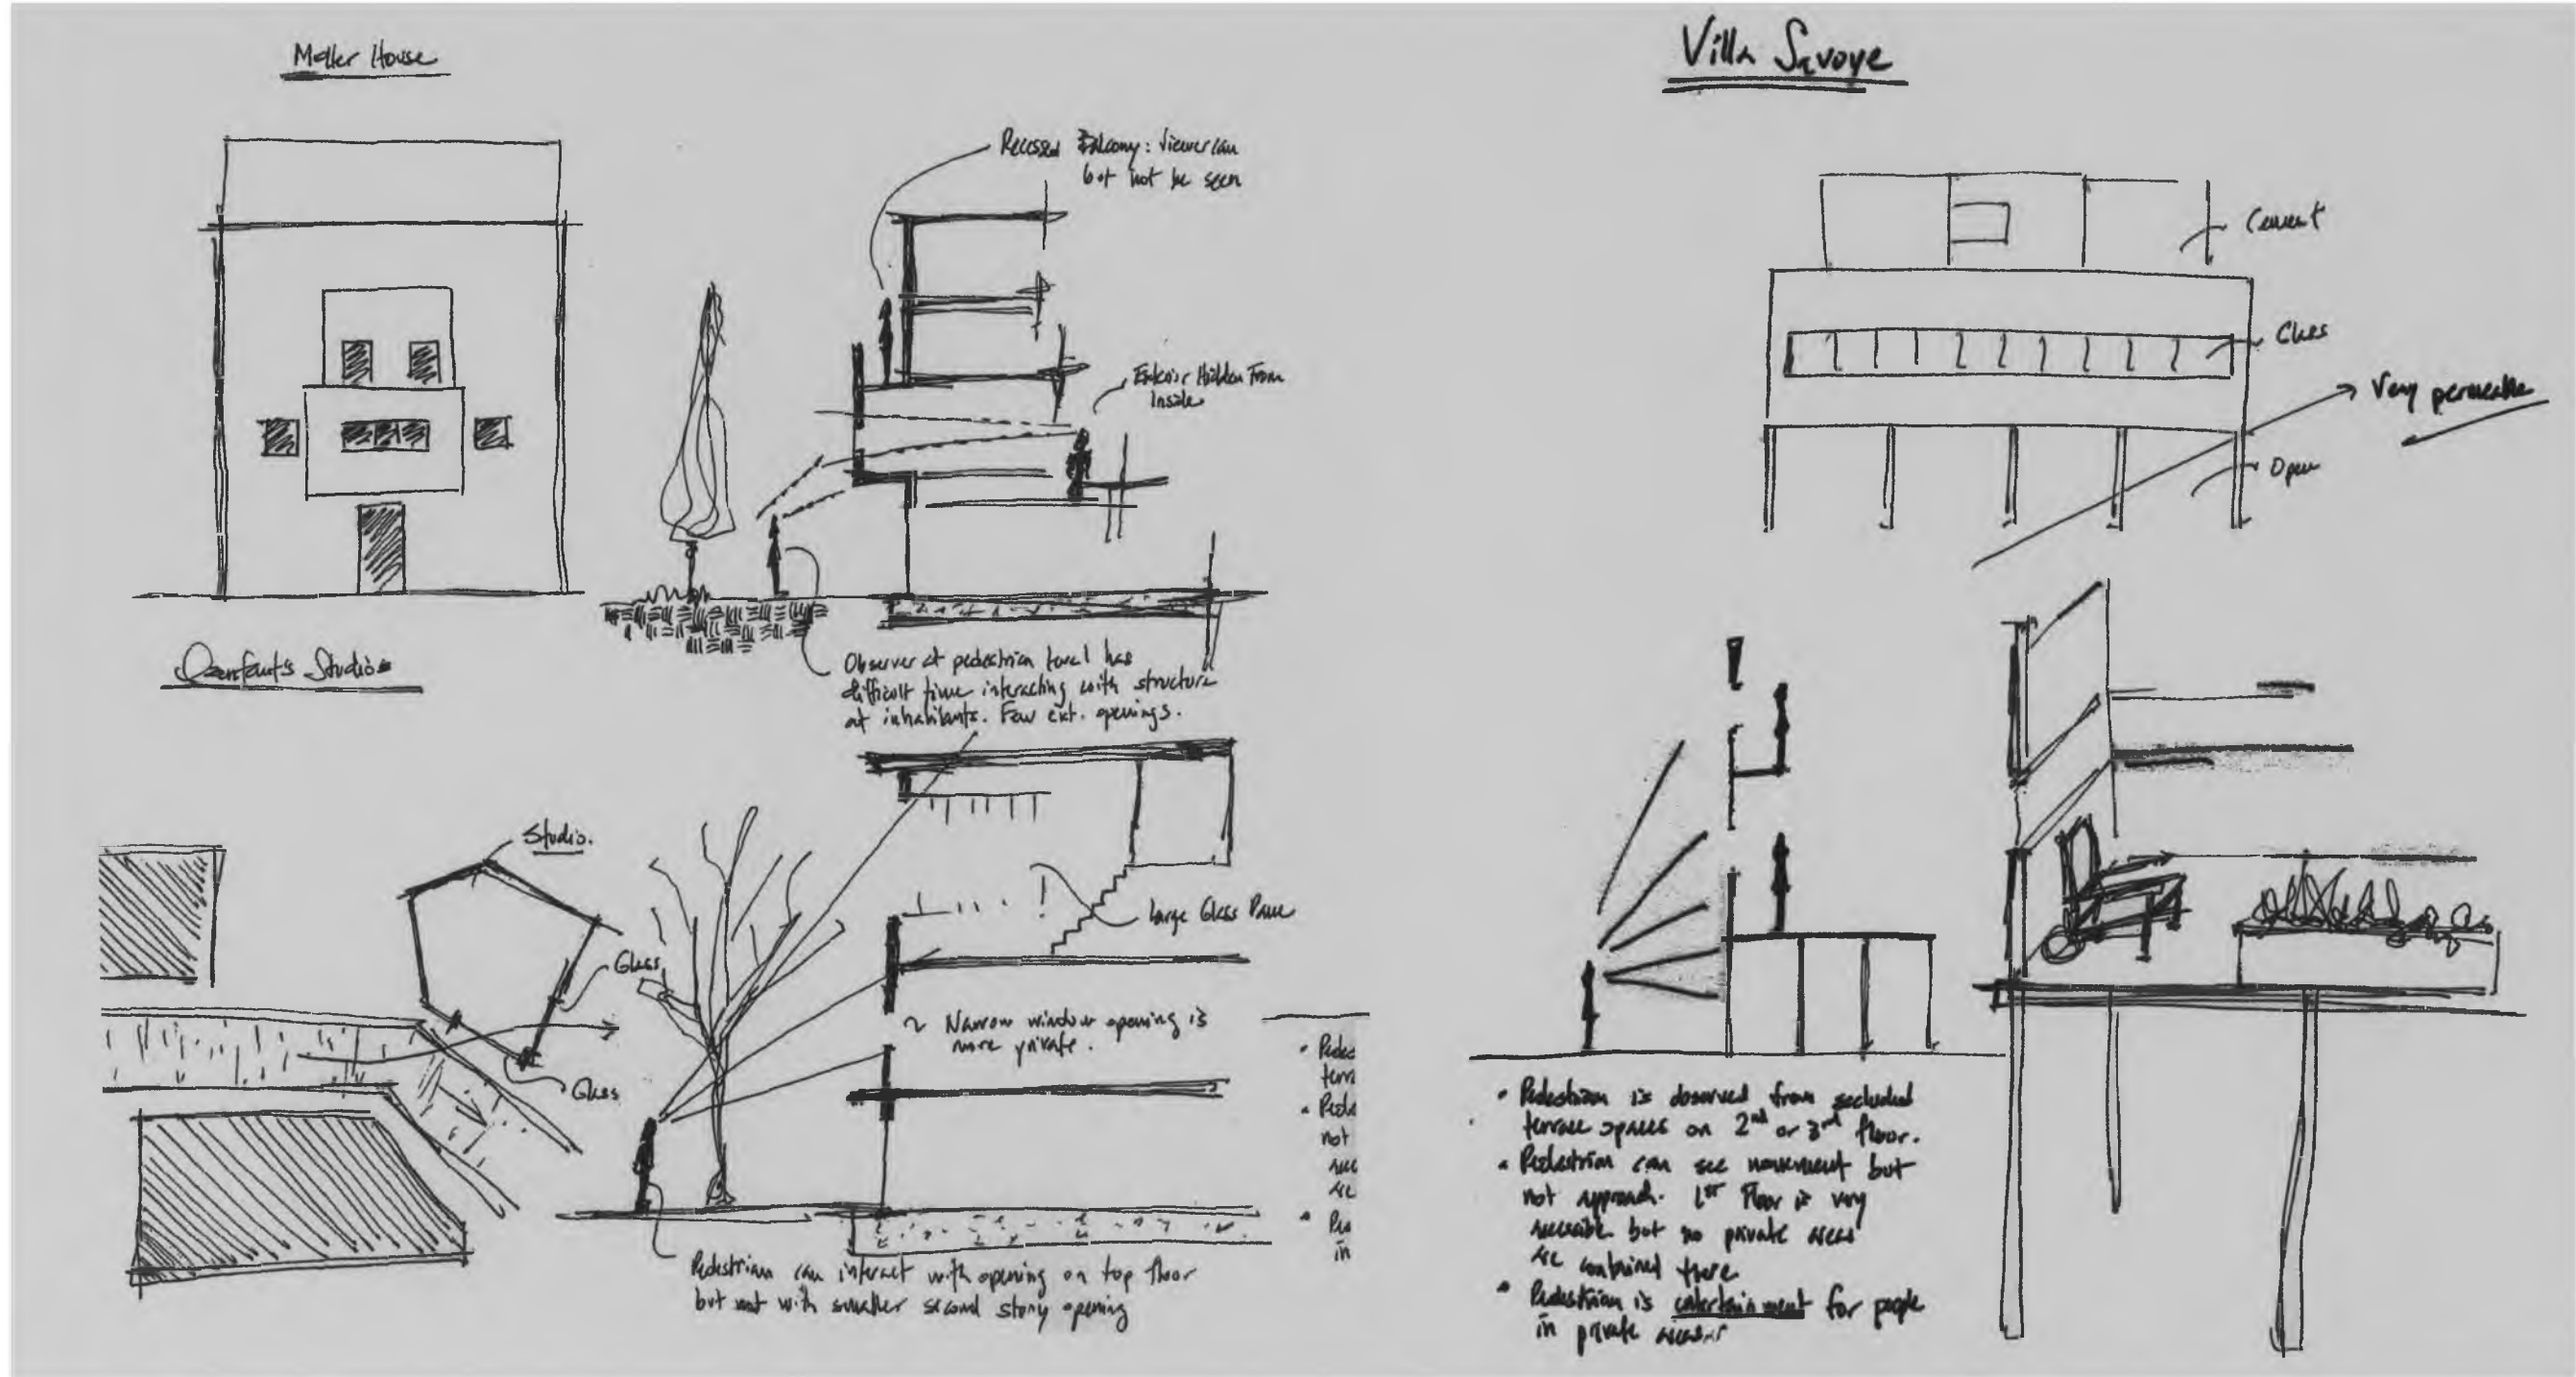 Moller House
Recessed Balcony: Viewer can
but not be seen
Exterior Hidden From
Inside
Observer at pedestrian level has
difficult time interacting with structure
at inhabitants. Few ext. openings.
Ozenfant's Studios
Studio.
Glass
Glass
Large Glass Pane
Narrow window opening is
more private.
Pedestrian can interact with opening on top floor
but not with smaller second story opening
• Pedes
terra
• Pede
not
acc
are
• Pe
in
Villa Savoye
Cement
Glass
Very permeable
Open
• Pedestrian is observed from secluded
terrace spaces on 2nd or 3rd floor.
• Pedestrian can see movement but
not approach. 1st Floor is very
accessible but no private areas
are contained there
• Pedestrian is entertainment for people
in private areas